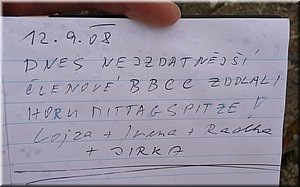 12.9.08
DNES NEJZDATNĚJŠÍ
ČLENOVÉ BBCC ZDOLALI
HORU MITTAGSPITZE!
Lojza + Irena + Radka
+ JIRKA